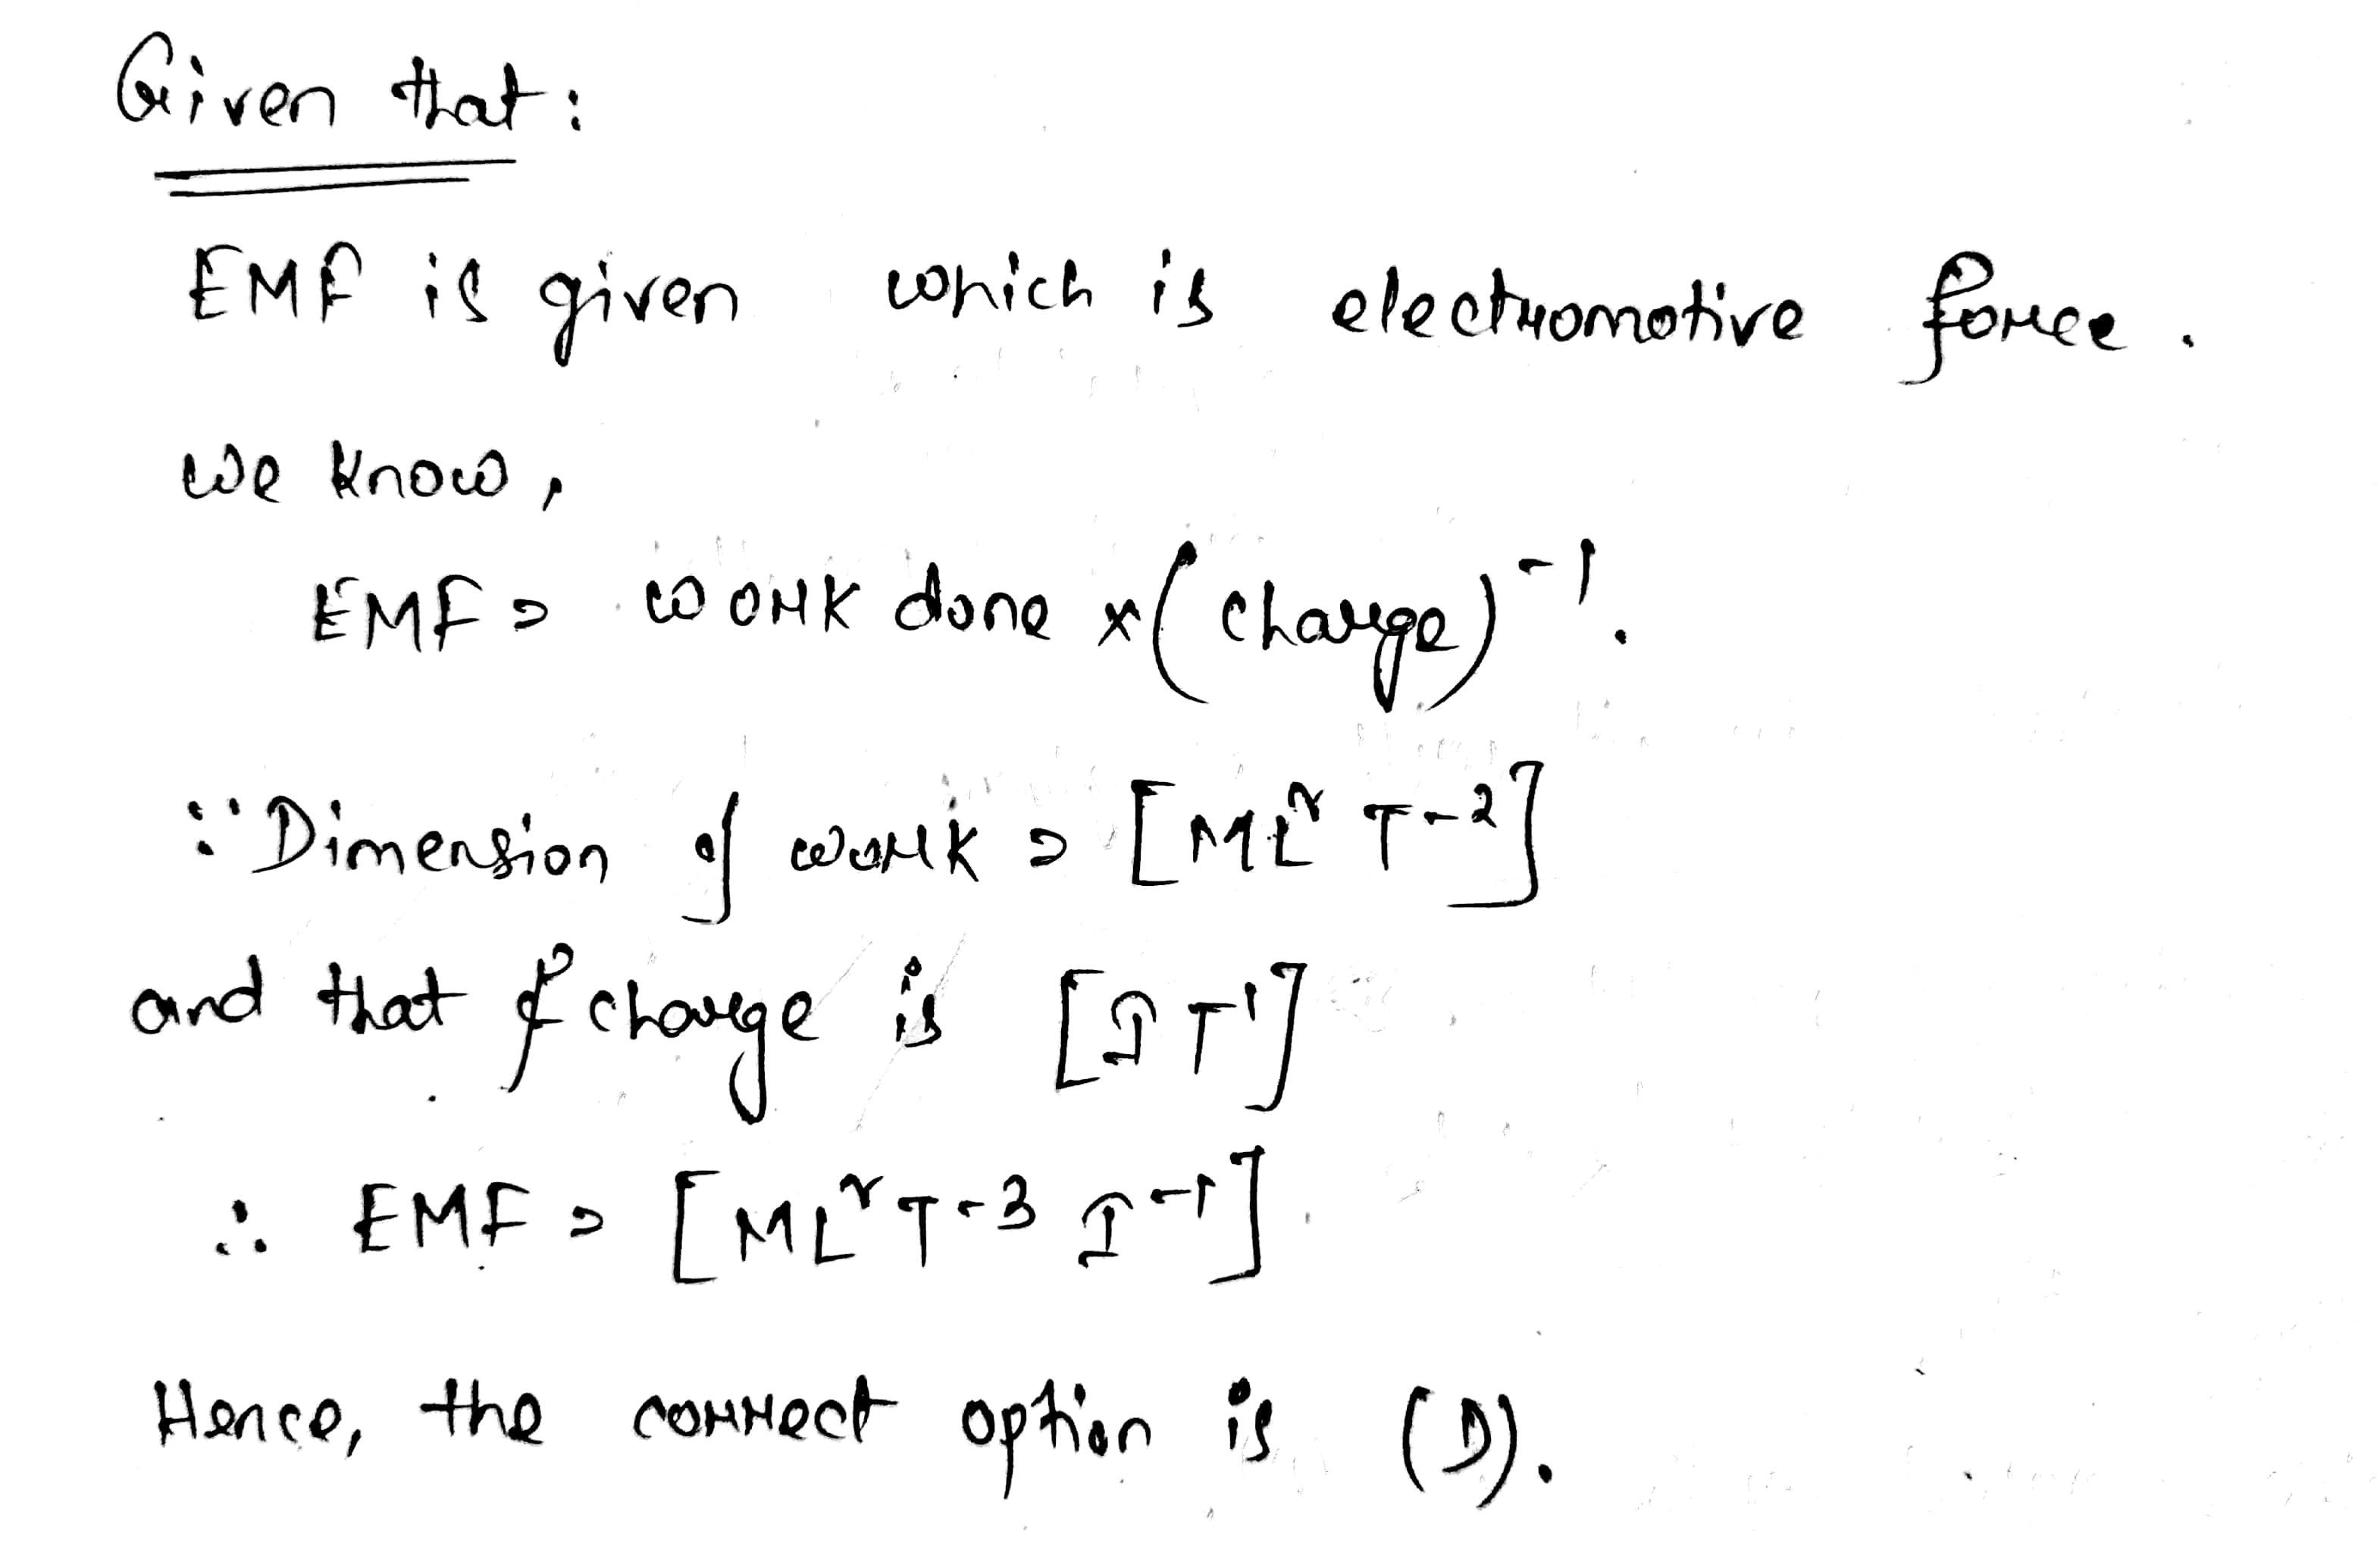 Given that:
EMF is given which is electromotive force.
We know,
EMF = work done × (charge)⁻¹.
∵ Dimension of work = [ML² T⁻²]
and that of charge is [I T¹]
∴ EMF = [ML² T⁻³ I⁻¹]
Hence, the correct option is (D).